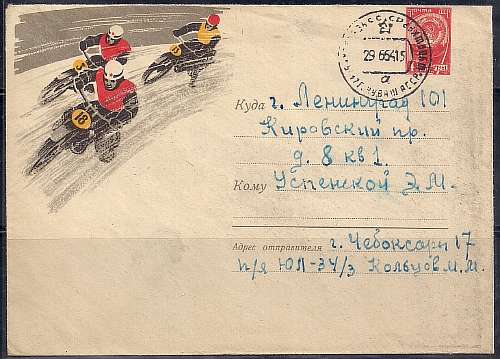 ПОЧТА
СССР
29 6 64 15
а
18
Куда г. Ленинград 101
Кировский пр.
д. 8 кв 1.
Кому Успенской Э. М.
Адрес отправителя г. Чебоксары 17
п/я ЮЛ-34/3 Кольцов М. М.